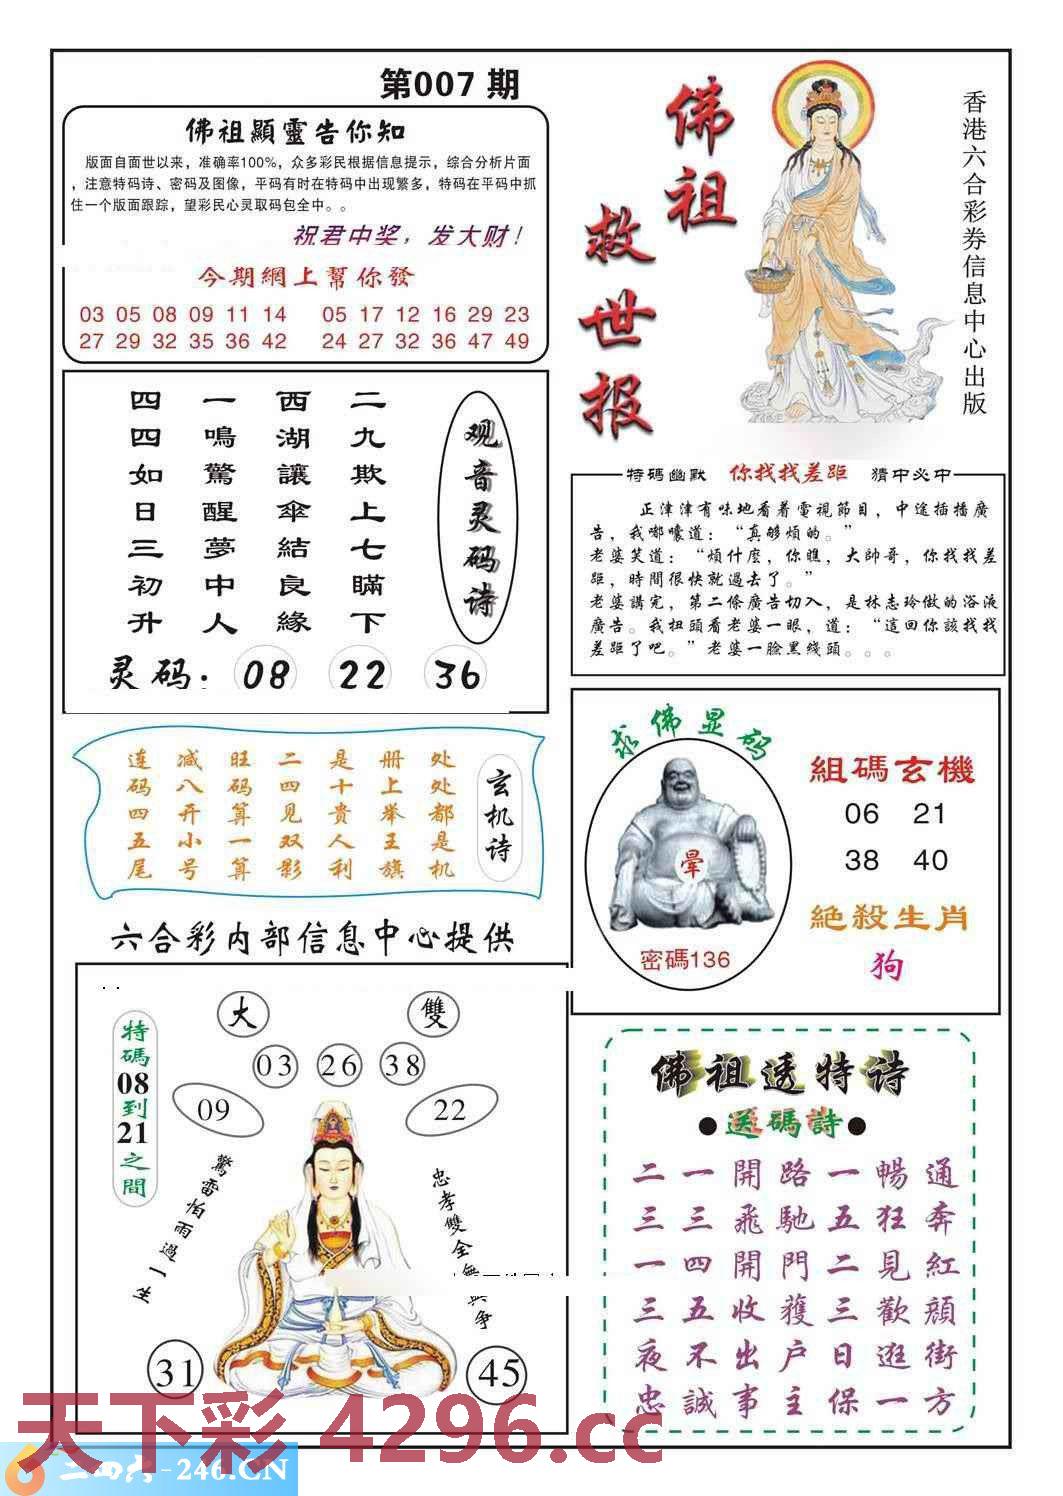 第007 期
佛祖顯靈告你知
版面自面世以来，准确率100%，众多彩民根据信息提示，综合分析片面
，注意特码诗、密码及图像，平码有时在特码中出现繁多，特码在平码中抓
住一个版面跟踪，望彩民心灵取码包全中。。
祝君中奖，发大财！
今期網上幫你發
03 05 08 09 11 14 05 17 12 16 29 23
27 29 32 35 36 42 24 27 32 36 47 49
佛祖
救世报
香港六合彩券信息中心出版
观音灵码诗
二九欺上七瞞下
西湖讓傘結良緣
一鳴驚醒夢中人
四四如日三初升
灵码：08 22 36
特碼幽默 你找找差距 猜中必中
正津津有味地看着電視節目，中途插播廣
告，我嘟嚷道：“真够煩的。”
老婆笑道：“煩什麼，你瞧，大帥哥，你找找差
距，時間很快就過去了。”
老婆講完，第二條廣告切入，是林志玲做的浴液
廣告。我扭頭看老婆一眼，道：“這回你該找找
差距了吧。”老婆一臉黑綫頭。。。
玄机诗
处处都是机
册上举王旗
是十贵人利
二四见双影
旺码算一算
减八开小号
连码四五尾
求佛显码
暈
密碼136
組碼玄機
06 21
38 40
絕殺生肖
狗
六合彩内部信息中心提供
特碼08到21之間
大 雙
03 26 38
09 22
驚雷怕雨過一生
忠孝雙全無與争
31 45
佛祖透特诗
●送碼詩●
二一開路一暢通
三三飛馳五狂奔
一四開門二見紅
三五收獲三歡顔
夜不出户日逛街
忠誠事主保一方
天下彩 4296.cc
二四六-246.CN